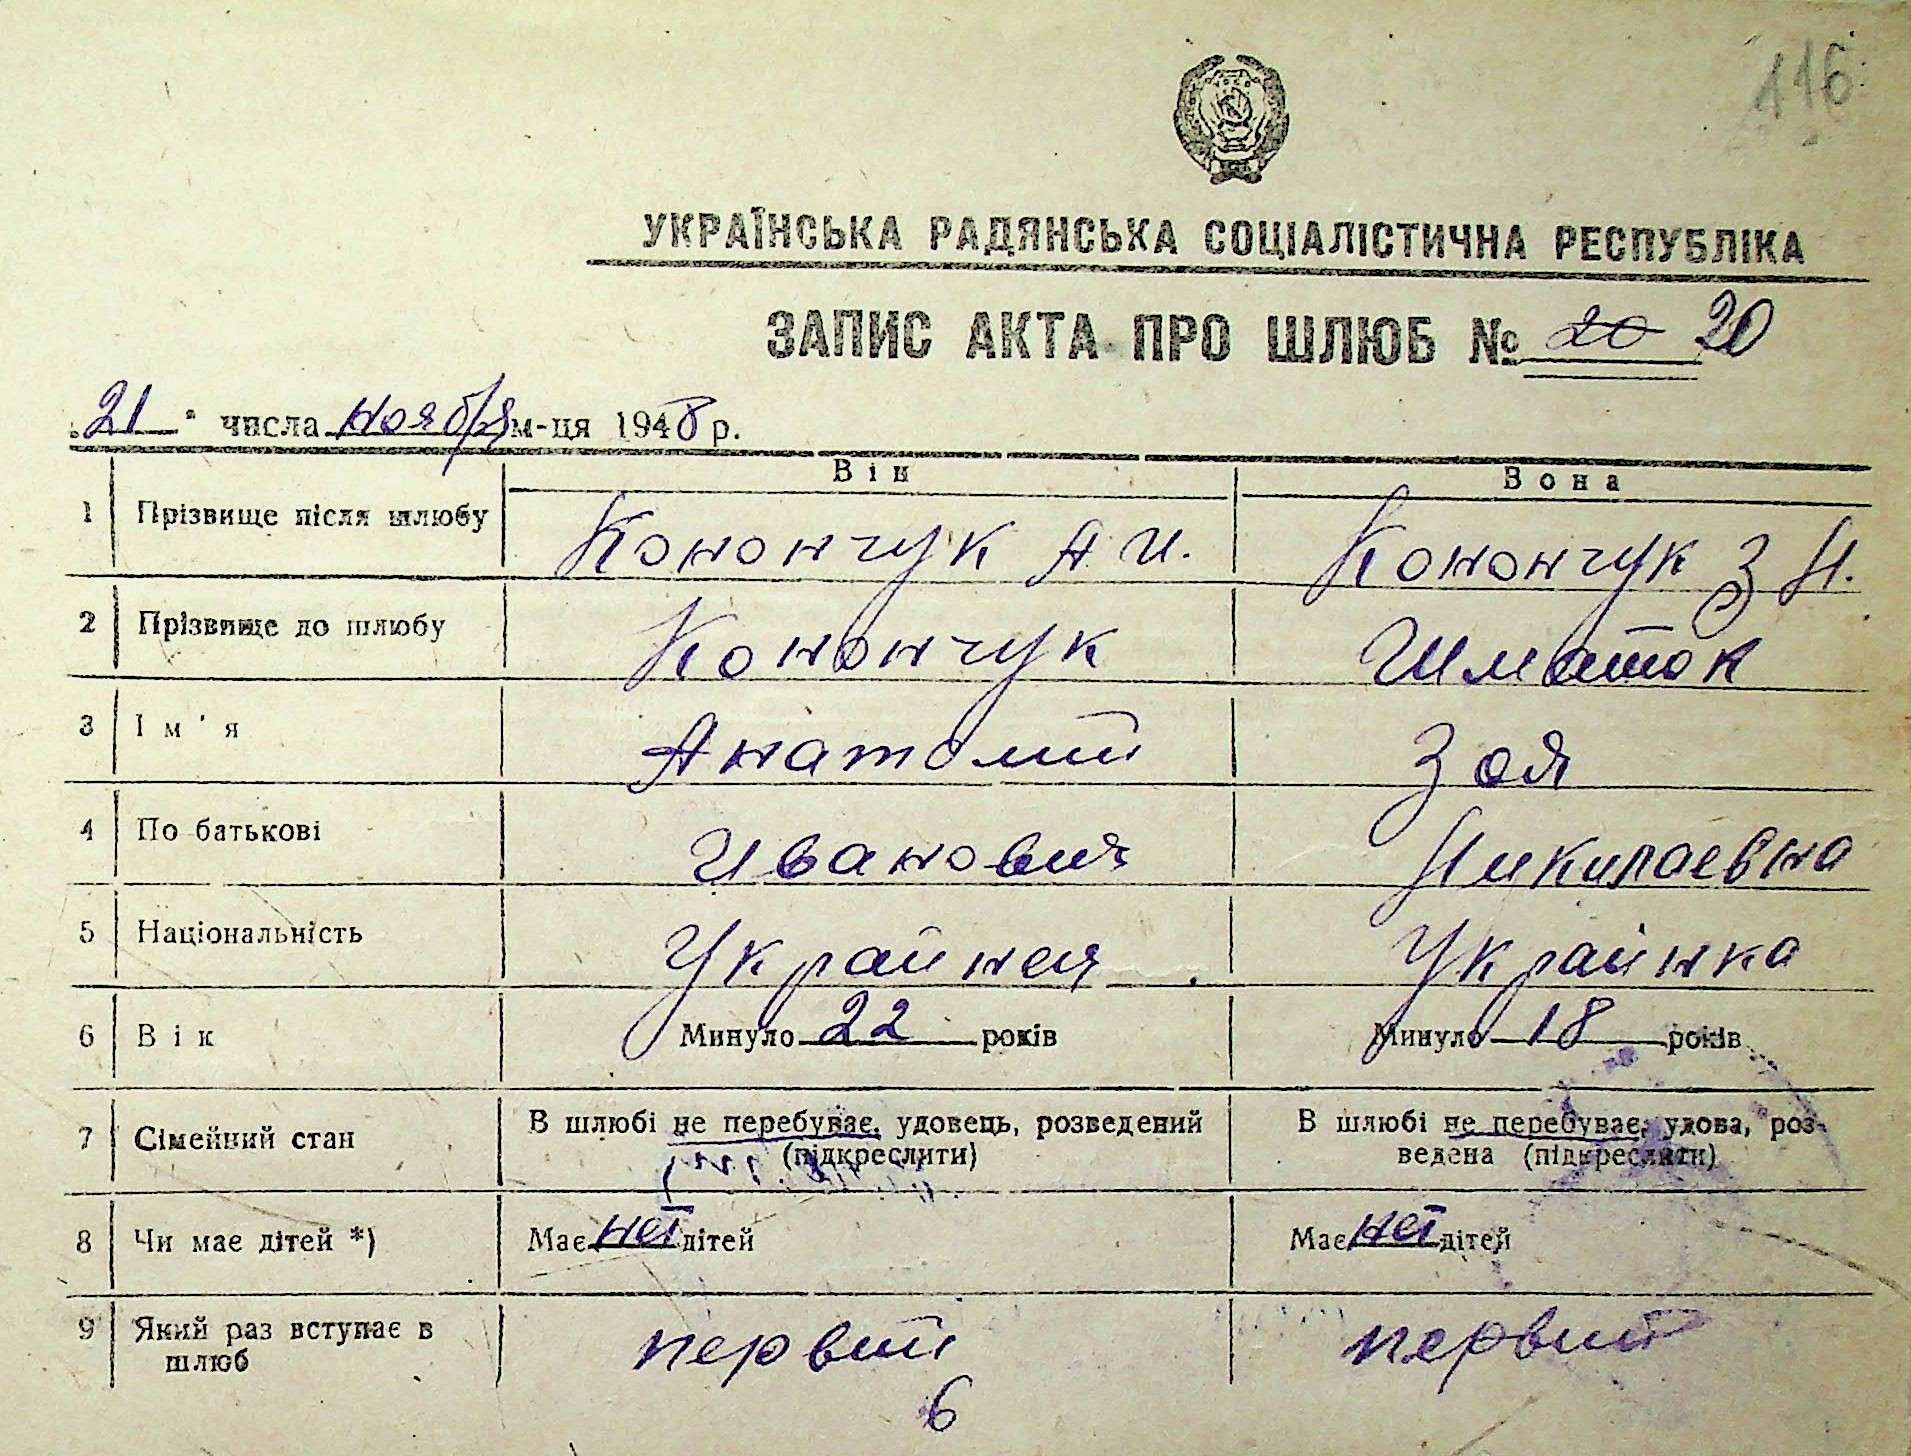 116
УКРАЇНСЬКА РАДЯНСЬКА СОЦІАЛІСТИЧНА РЕСПУБЛІКА
ЗАПИС АКТА ПРО ШЛЮБ № 20 20
„21" числа ноября м-ця 1948 р.
Він Вона
1 Прізвище після шлюбу Конончук А И. Конончук З Н.
2 Прізвище до шлюбу Конончук Шматок
3 Ім'я Анатолий Зоя
4 По батькові Иванович Николаевна
5 Національність Украйнец Украинка
6 Вік Минуло 22 років Минуло 18 років
7 Сімейний стан В шлюбі не перебуває, удовець, розведений (підкреслити) В шлюбі не перебуває, удова, роз-
ведена (підкреслити)
8 Чи має дітей *) Має нет дітей Має нет дітей
9 Який раз вступає в шлюб первий первий
6